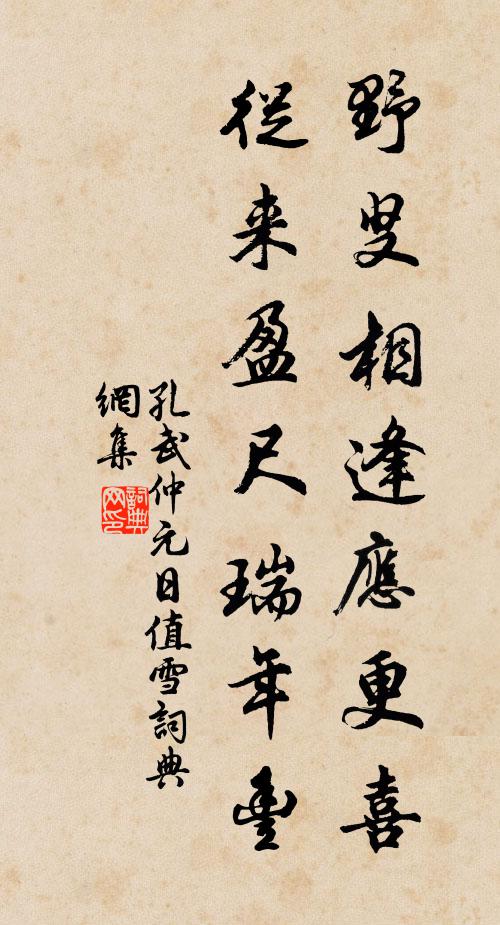 野叟相逢應更喜
從来盈尺瑞年豐
孔武仲元日值雪詞典
網集
詞典
网印